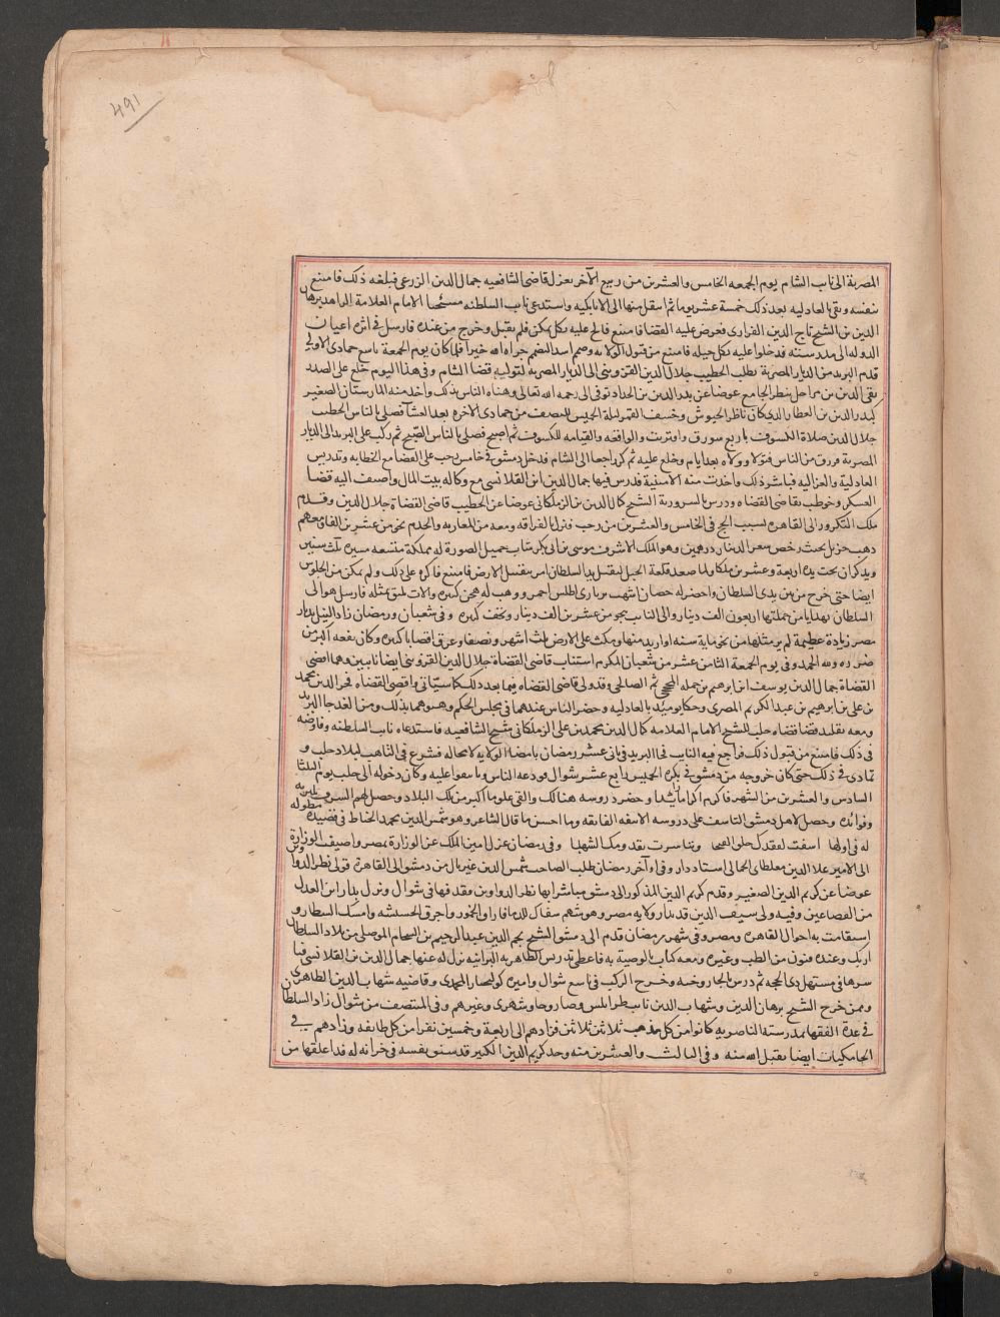 ٤٩١
المصرية الى نايب الشام يوم الجمعه الخامس والعشرين من ربيع الآخر بعزل قاضى الشافعيه جمال الدين الزرعى فبلغه ذلك فامتنع
بنفسه وبقى بالعادليه بعد ذلك خمسة عشر يوما ثم انتقل منها الى الاتابكيه واستدعى نايب السلطنه شيخنا الامام العلامة الزاهد برهان
الدين بن الشيخ تاج الدين الفزارى فعرض عليه القضا فامتنع فالح عليه بكل ممكن فلم يقبل وخرج من عنده فارسل فى اثره اعيان
الدوله الى مدرسته فدخلوا عليه بكل حيله فامتنع من قبول الولايه وصمم اشد التصميم جزاه الله خيرا فلما كان يوم الجمعة تاسع جمادى الاولى
قدم البريد من الديار المصرية بطلب الخطيب جلال الدين القزوينى الى الديار المصريه لتوليه قضا الشام وفى هذا اليوم خلع على الصدر
تقى الدين بن مراجل بنظر الجامع عوضا عن بدر الدين بن الحداد توفى الى رحمه الله تعالى وهناه الناس بذلك واخذ منه المارستان الصغير
لبدر الدين بن العطار الذى كان ناظر الجيوش وخسف القمر ليلة الخميس للنصف من جمادى الاخره بعد العشا فصلى بالناس الخطيب
جلال الدين صلاة الكسوف باربع سور ق واقتربت والواقعه والقيامه للكسوف ثم اصبح فصلى بالناس الصبح ثم ركب على البريد الى الديار
المصرية فرزق من الناس قبولا وولاه بعد ايام وخلع عليه ثم كر راجعا الى الشام فدخل دمشق فى خامس رجب على القضا مع الخطابه وتدريس
العادلية والغزاليه فباشر ذلك واخذت منه الامنية فدرس فيها جمال الدين ابن القلانسى مع وكاله بيت المال واضيف اليه قضا
العسكر وخوطب بقاضى القضاه ودرس بالمسروريه الشيخ كمال الدين بن الزملكانى عوضا عن الخطيب قاضى القضاة جلال الدين وقدم
ملك التكرور الى القاهره بسبب الحج فى الخامس والعشرين من رجب فنزل بالقرافه ومعه من المغاربه والخدم نحو من عشرين الفا ومعهم
ذهب جزيل بحيث رخص سعر الدينار درهمين وهو الملك الاشرف موسى بن ابى بكر شاب جميل الصورة له مملكة متسعه مسيرة ثلث سنين
ويذكر ان تحت يده اربعة وعشرين ملكا ولما صعد قلعة الجبل ليقبل يد السلطان امر بتقبيل الارض فامتنع فاكره على ذلك ولم يمكن من الجلوس
ايضا حتى خرج من بين يدى السلطان واحضر له حصان اشهب اطلس احمر ووهب له هجن كثيره والات تليق بمثله فارسل هو الى
السلطان بهدايا من جملتها اربعون الف دينار والى النايب بنحو من عشرين الف دينار وتحف كثيره وفى شعبان ورمضان زاد النيل بديار
مصر زيادة عظيمة لم ير مثلها من نحو مايه سنه او ازيد منها ومكث على الارض ثلث اشهر ونصفا وغرق اقصابا كثيره وكان نفعه اكثر من
ضرره ولله الحمد وفى يوم الجمعة الثامن عشر من شعبان المكرم استناب قاضى القضاة جلال الدين القزوينى ايضا نايبين وهما اقضى
القضاة جمال الدين يوسف ابن ابرهيم بن جمله المحجى ثم الصالحى وقد ولى قاضى القضاه فيما بعد ذلك كما سياتى واقضى القضاه فخر الدين محمد
بن على بن ابرهيم بن عبد الكريم المصرى وحكما يوميذ بالعادليه وحضر الناس عندهما فى مجلس الحكم وهنوهما بذلك ومن الغد جاء البريد
ومعه تقليد قضا قضاه حلب للشيخ الامام العلامه كمال الدين محمد بن على الزملكانى شيخ الشافعيه فاستدعاه نايب السلطنه وفاوضه
فى ذلك فامتنع من قبول ذلك فراجع فيه النايب فجا البريد فى ثانى عشر رمضان بامضا الولايه لا محاله فشرع فى التاهب لبلاد حلب و
تمادى فى ذلك حتى كان خروجه من دمشق فى بكرة الخميس رابع عشر شوال فودعه الناس وكان دخوله الى حلب يوم الثلثا
السادس والعشرين من الشهر فاكرم اكراما زايدا وحضر دروسه هنالك والقى علوما اكبر من تلك البلاد وحصل لهم الشرف به
وفوائده وحصل لاهل دمشق التاسف على دروسه الانيقه الفايقه وما احسن ما قال الشاعر وهو شمس الدين محمد الخياط فى قصيدة مطوله
له فى اولها اسفت لفقدك جلق الفيحا وتباشرت بقدومك الشهبا وفى رمضان عزل امين الملك عن الوزارة بمصر واضيفت الوزارة
الى الامير علا الدين مغلطاى الجمالى استاددار وفى اواخر رمضان طلب الصاحب شمس الدين غبريال من دمشق الى القاهرة فولى نظر الدواوين
عوضا عن كريم الدين الصغير وقدم كريم الدين المذكور الى دمشق مباشرا بها نظر الدواوين فقدمها فى شوال ونزل بدار ابن العدل
من القصاعين وفيه ولى سيف الدين قديدار ولايه مصر وهو شهم سفاك للدما فاراق الخمور واحرق الحشيشه وامسك الشطار و
استقامت به احوال القاهره ومصر وفى شهر رمضان قدم الى دمشق الشيخ نجم الدين عبد الرحيم بن الشحام الموصلى من بلاد السلطان
ازبك وعنده فنون من الطب وغيره ومعه كتاب بالوصية به فاعطى تدريس الظاهريه البرانيه نزل له عنها جمال الدين بن القلانسى فبا
شرها فى مستهل ذى الحجه ثم درس بالجاروخيه وخرج الركب فى تاسع شوال واميره كوكنجار المحمدى وقاضيه شهاب الدين الظاهرى
وممن خرج الشيخ برهان الدين وشهاب الدين ناظر طرابلس وصاروجا وشهرى وغيرهم وفى المنتصف من شوال زاد السلطان
فى عدة الفقها بمدرسته الناصريه كانوا من كل مذهب ثلاثين ثلاثين فزادهم الى اربعة وخمسين نفرا من كل طايفه وزادهم فى
الجامكيات ايضا تقبل الله منه وفى الثالث والعشرين منه وجد كريم الدين الكبير قد شنق نفسه فى خزانة له قد اغلقها من